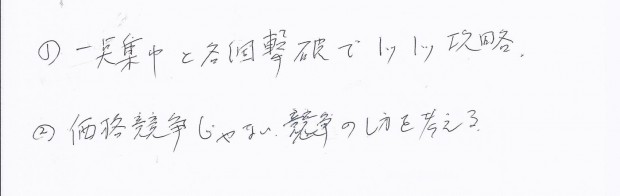 ① 一点集中と各個撃破で1ツ1ツ攻略.
② 価格競争じゃない.競争のし方を考える.